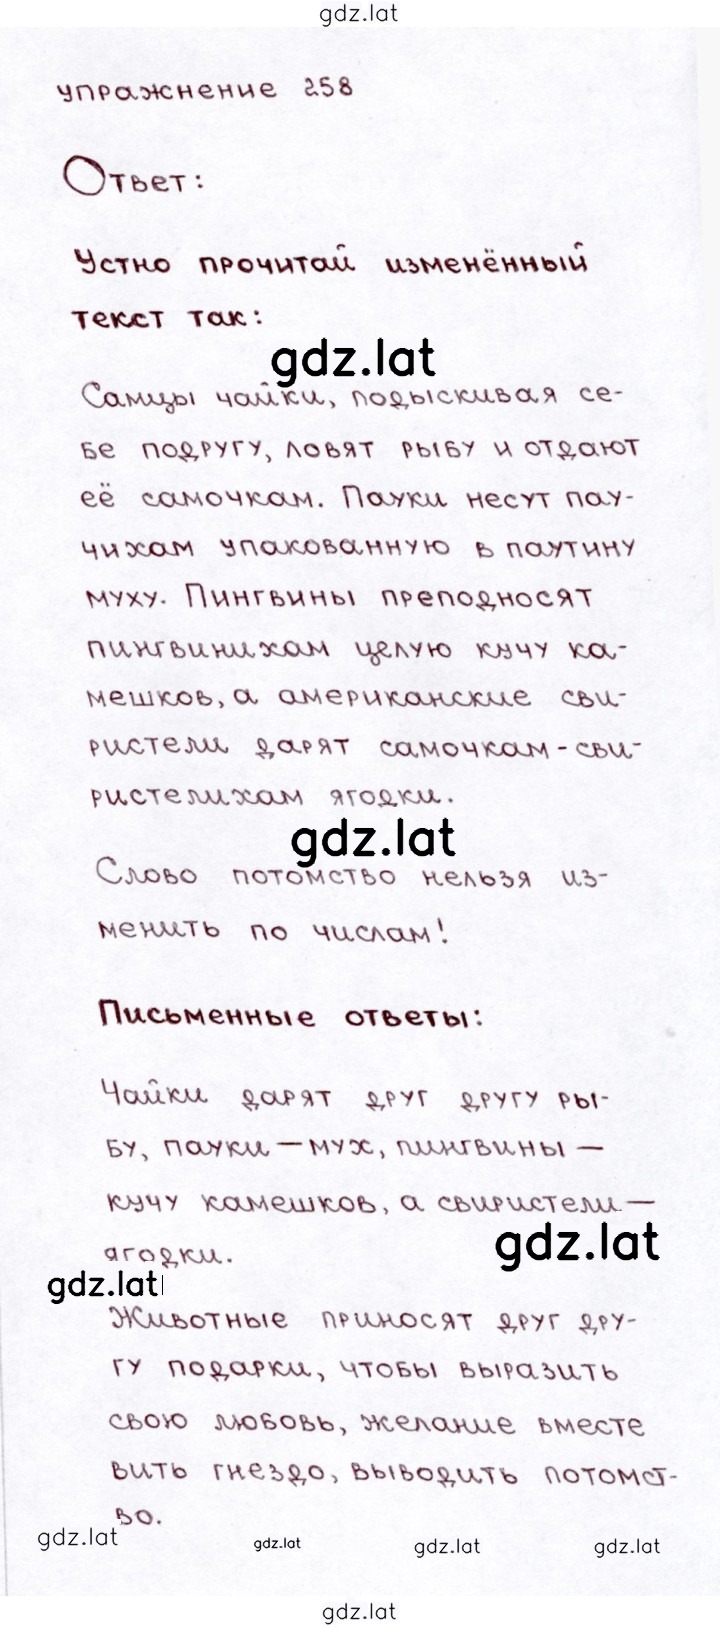 gdz.lat
упражнение 258
Ответ:
Устно прочитай изменённый
текст так:
gdz.lat
Самцы чайки, подыскивая се-
бе подругу, ловят рыбу и отдают
её самочкам. Пауки несут пау-
чихам упакованную в паутину
муху. Пингвины преподносят
пингвинихам целую кучу ка-
мешков, а американские сви-
ристели дарят самочкам-сви-
ристелихам ягодки.
gdz.lat
Слово потомство нельзя из-
менить по числам!
Письменные ответы:
Чайки дарят друг другу ры-
бу, пауки — мух, пингвины —
кучу камешков, а свиристели —
gdz.lat
ягодки.
gdz.lat
Животные приносят друг дру-
гу подарки, чтобы выразить
свою любовь, желание вместе
вить гнездо, выводить потомст-
во.
gdz.lat gdz.lat gdz.lat gdz.lat
gdz.lat